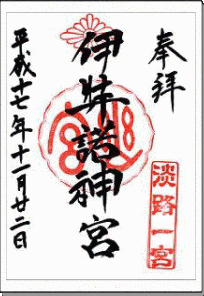 奉拝
淡路一宮
伊弉諾神宮
平成十七年十一月廿二日